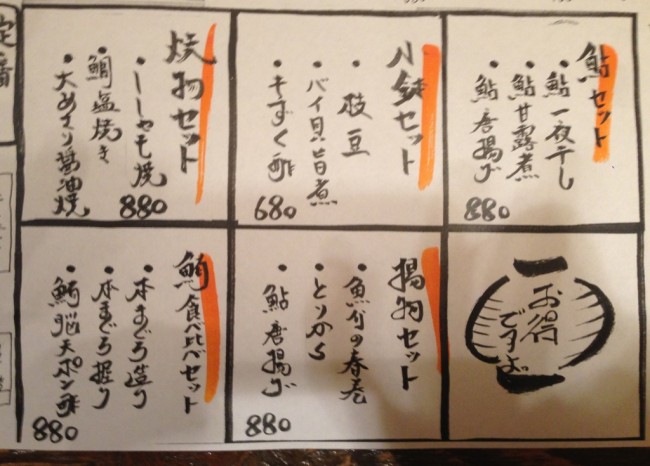 鮎セット
・鮎一夜干し
・鮎甘露煮
・鮎唐揚げ
880
小鉢セット
・枝豆
・バイ貝旨煮
・もずく酢
680
焼物セット
・ししゃも焼
・鯛塩焼き
・大あさり醤油焼
880
お得
ですよ
揚物セット
・魚介の春巻
・とりから
・鮎唐揚げ
880
鮪食べ比べセット
・本まぐろ造り
・本まぐろ握り
・鮪脳天ポン酢
880